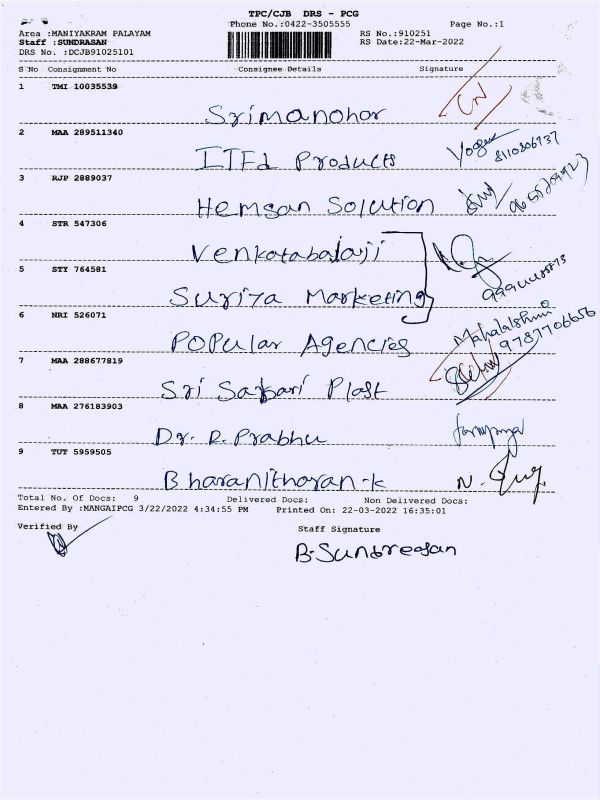 TPC/CJB DRS - PCG
Phone No.:0422-3505555 Page No.:1
Area :MANIYAKRAM PALAYAM RS No.:910251
Staff :SUNDRASAN RS Date:22-Mar-2022
DRS No. :DCJB91025101
S No Consignment No Consignee Details Signature
1 TMI 10035539
Srimanohar CN
2 MAA 289511340
ITFd Products Yogee 8110806737
3 RJP 2889037
Hemsan Solution
4 STR 547306
Venkatabalaji
5 STY 764581
Suriya Marketing
6 NRI 526071
Popular Agencies Mahalakshmi 9787706656
7 MAA 288677819
Sri Plast
8 MAA 276183903
Dr. R. Prabhu
9 TUT 5959505
Bharanitharan-k N.
Total No. Of Docs: 9 Delivered Docs: Non Delivered Docs:
Entered By :MANGAIPCG 3/22/2022 4:34:55 PM Printed On: 22-03-2022 16:35:01
Verified By Staff Signature
B-Sundresan